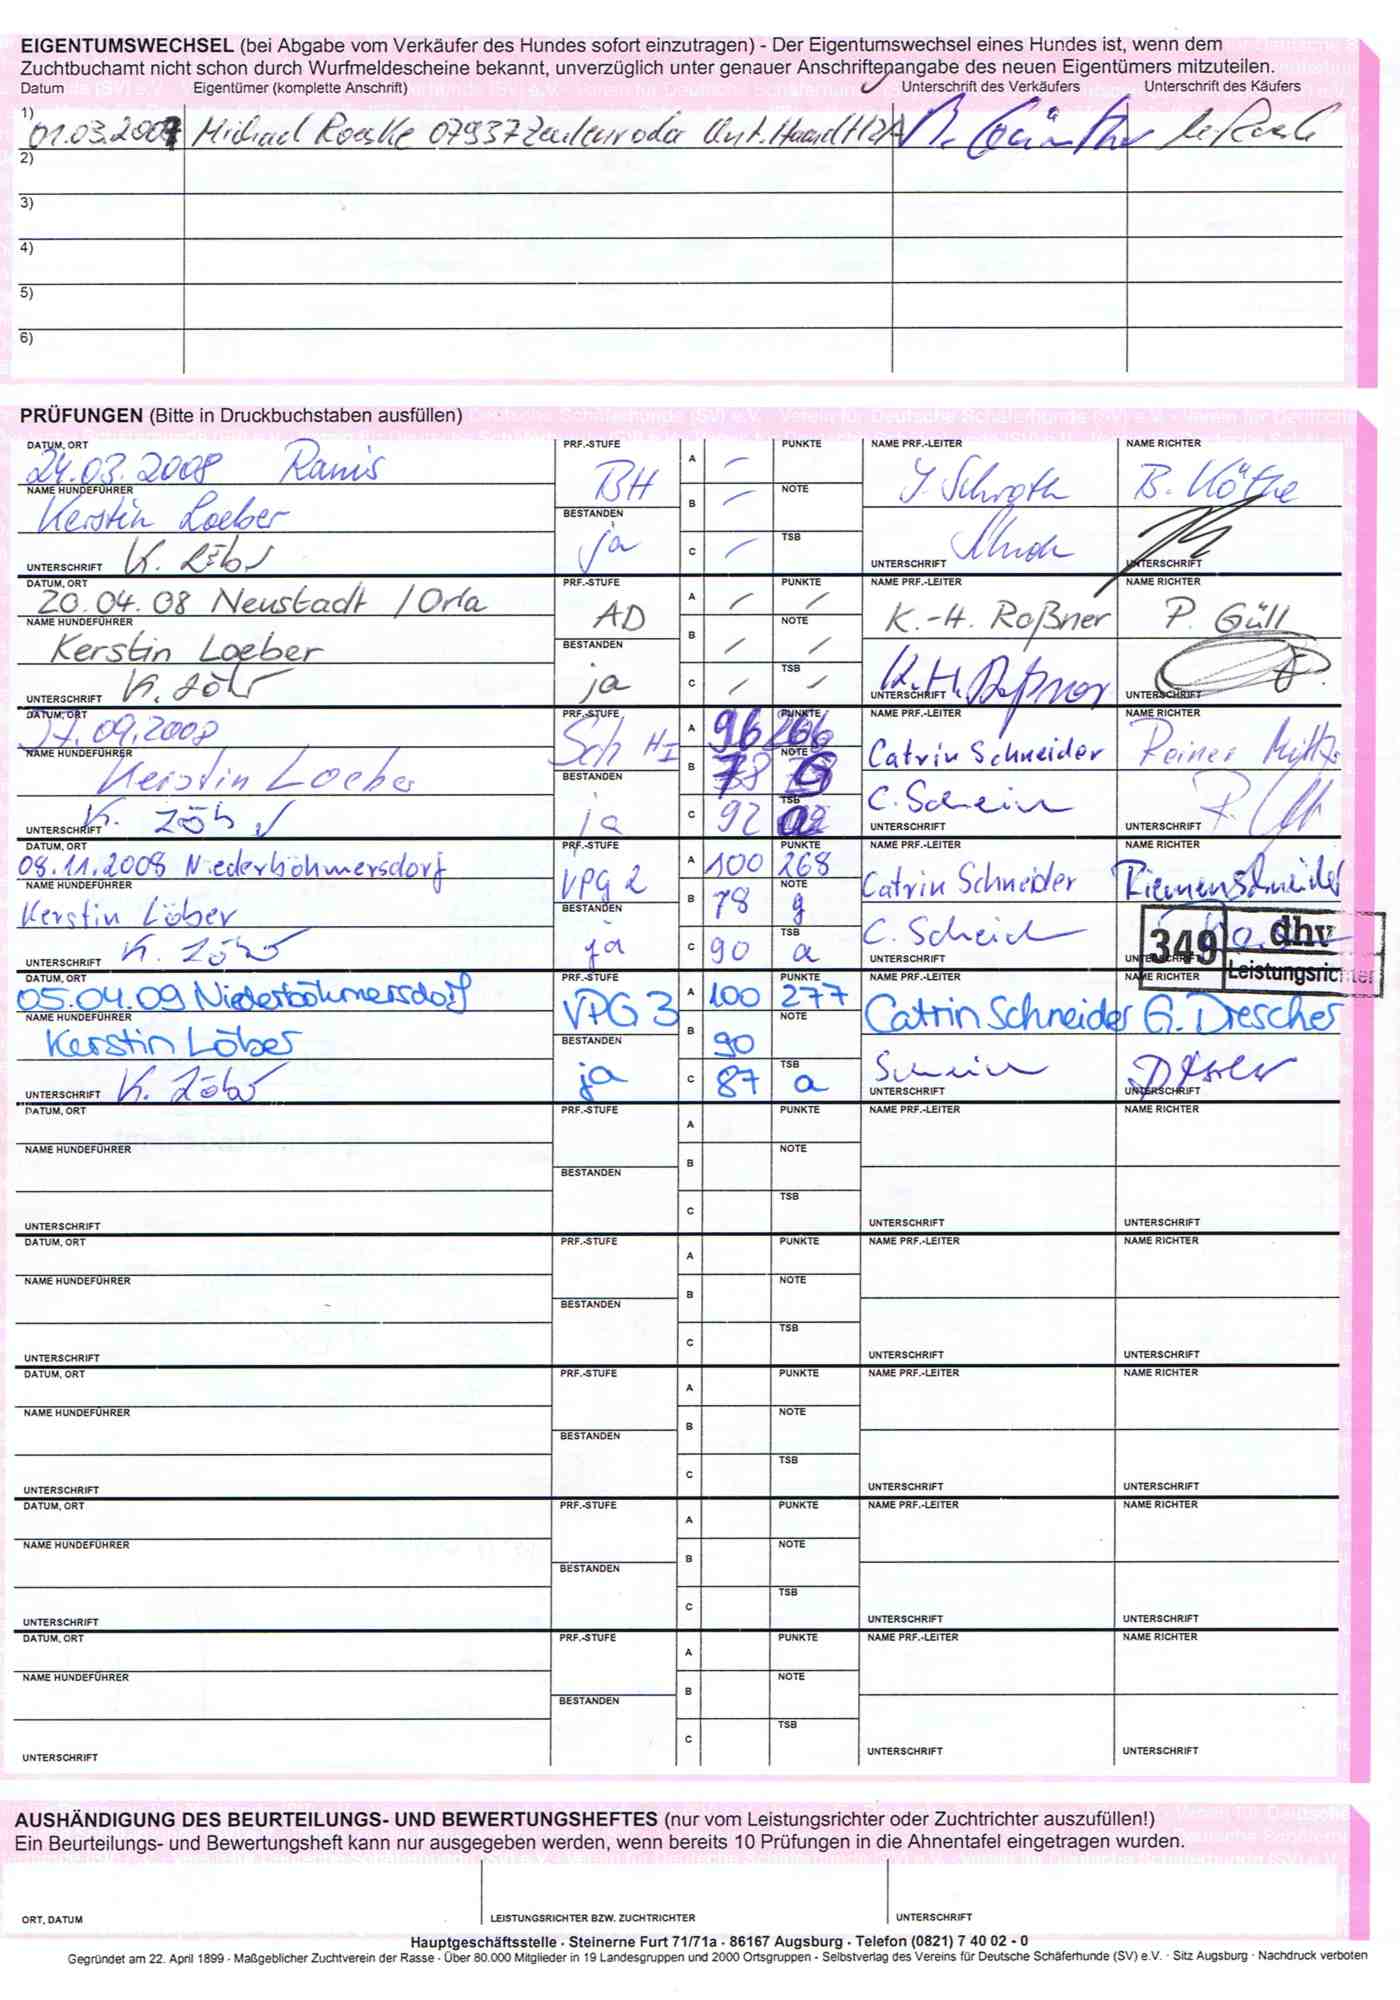 EIGENTUMSWECHSEL (bei Abgabe vom Verkäufer des Hundes sofort einzutragen) - Der Eigentumswechsel eines Hundes ist, wenn dem
Zuchtbuchamt nicht schon durch Wurfmeldescheine bekannt, unverzüglich unter genauer Anschriftenangabe des neuen Eigentümers mitzuteilen.
Datum Eigentümer (komplette Anschrift) Unterschrift des Verkäufers Unterschrift des Käufers
1) 01.03.2007 Michael Roeske 07937 Zeulenroda
2)
3)
4)
5)
6)
PRÜFUNGEN (Bitte in Druckbuchstaben ausfüllen)
DATUM, ORT PRF.-STUFE A PUNKTE NAME PRF.-LEITER NAME RICHTER
24.03.2008 Ranis BH – B. Köthe
NAME HUNDEFÜHRER B – NOTE
Kerstin Loeber BESTANDEN
ja C – TSB
UNTERSCHRIFT K. UNTERSCHRIFT UNTERSCHRIFT
DATUM, ORT PRF.-STUFE A / PUNKTE / NAME PRF.-LEITER NAME RICHTER
20.04.08 Neustadt / Orla AD K.-H. Roßner P. Güll
NAME HUNDEFÜHRER B / NOTE /
Kerstin Loeber BESTANDEN
ja C / TSB / K.H. Roßner
UNTERSCHRIFT K. UNTERSCHRIFT UNTERSCHRIFT
DATUM, ORT PRF.-STUFE A 96 PUNKTE 266 NAME PRF.-LEITER NAME RICHTER
09.2008 Sch H I Catrin Schneider Reiner
NAME HUNDEFÜHRER B 78 NOTE
Kerstin Loeber BESTANDEN
ja C 92 TSB a C.
UNTERSCHRIFT K. UNTERSCHRIFT UNTERSCHRIFT
DATUM, ORT PRF.-STUFE A 100 PUNKTE 268 NAME PRF.-LEITER NAME RICHTER
08.11.2008 Niederböhmersdorf VPG 2 Catrin Schneider Riemenschneider
NAME HUNDEFÜHRER B 78 NOTE g
Kerstin Löber BESTANDEN
ja C 90 TSB a C. 349 dhv
UNTERSCHRIFT K. UNTERSCHRIFT UNTERSCHRIFT Leistungsrichter
DATUM, ORT PRF.-STUFE A 100 PUNKTE 277 NAME PRF.-LEITER NAME RICHTER
05.04.09 Niederböhmersdorf VPG 3 Catrin Schneider G. Drescher
NAME HUNDEFÜHRER B 90 NOTE
Kerstin Löber BESTANDEN
ja C 87 TSB a
UNTERSCHRIFT K. UNTERSCHRIFT UNTERSCHRIFT
DATUM, ORT PRF.-STUFE A PUNKTE NAME PRF.-LEITER NAME RICHTER
NAME HUNDEFÜHRER B NOTE
BESTANDEN
C TSB
UNTERSCHRIFT UNTERSCHRIFT UNTERSCHRIFT
DATUM, ORT PRF.-STUFE A PUNKTE NAME PRF.-LEITER NAME RICHTER
NAME HUNDEFÜHRER B NOTE
BESTANDEN
C TSB
UNTERSCHRIFT UNTERSCHRIFT UNTERSCHRIFT
DATUM, ORT PRF.-STUFE A PUNKTE NAME PRF.-LEITER NAME RICHTER
NAME HUNDEFÜHRER B NOTE
BESTANDEN
C TSB
UNTERSCHRIFT UNTERSCHRIFT UNTERSCHRIFT
DATUM, ORT PRF.-STUFE A PUNKTE NAME PRF.-LEITER NAME RICHTER
NAME HUNDEFÜHRER B NOTE
BESTANDEN
C TSB
UNTERSCHRIFT UNTERSCHRIFT UNTERSCHRIFT
DATUM, ORT PRF.-STUFE A PUNKTE NAME PRF.-LEITER NAME RICHTER
NAME HUNDEFÜHRER B NOTE
BESTANDEN
C TSB
UNTERSCHRIFT UNTERSCHRIFT UNTERSCHRIFT
AUSHÄNDIGUNG DES BEURTEILUNGS- UND BEWERTUNGSHEFTES (nur vom Leistungsrichter oder Zuchtrichter auszufüllen!)
Ein Beurteilungs- und Bewertungsheft kann nur ausgegeben werden, wenn bereits 10 Prüfungen in die Ahnentafel eingetragen wurden.
ORT, DATUM LEISTUNGSRICHTER BZW. ZUCHTRICHTER UNTERSCHRIFT
Hauptgeschäftsstelle · Steinerne Furt 71/71a · 86167 Augsburg · Telefon (0821) 7 40 02 - 0
Gegründet am 22. April 1899 - Maßgeblicher Zuchtverein der Rasse - Über 80.000 Mitglieder in 19 Landesgruppen und 2000 Ortsgruppen - Selbstverlag des Vereins für Deutsche Schäferhunde (SV) e.V. · Sitz Augsburg · Nachdruck verboten